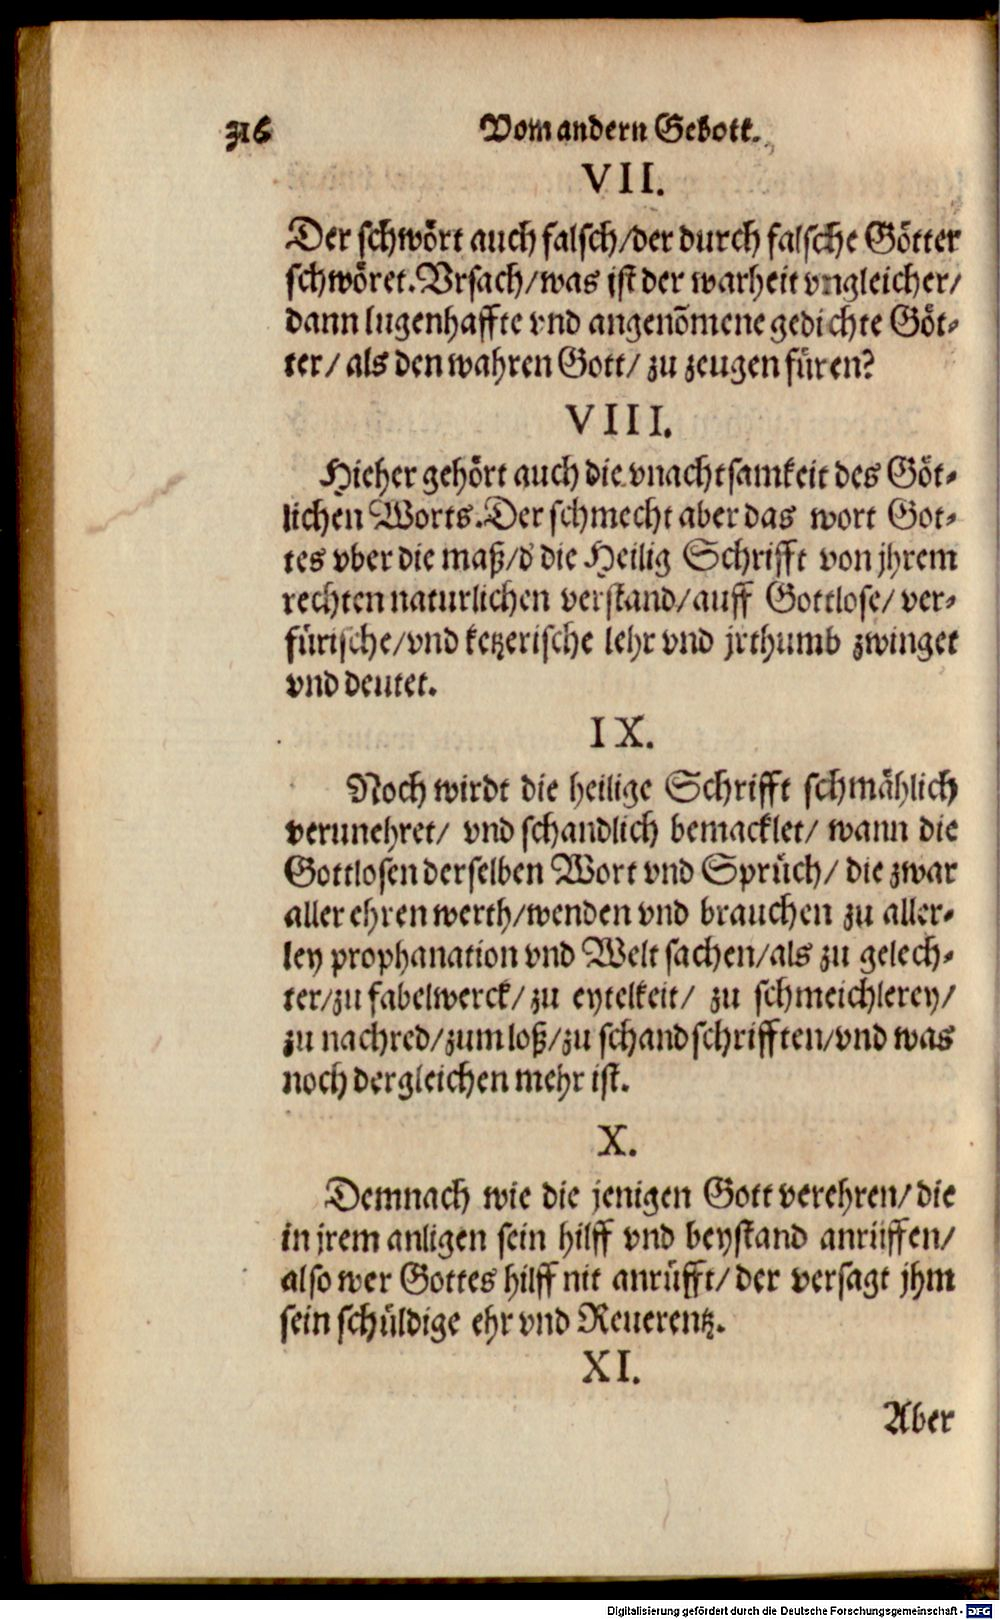 316 Vom andern Gebott.
VII.
Der schwört auch falsch/der durch falsche Götter
schwöret. Vrsach/was ist der warheit vngleicher/
dann lugenhaffte vnd angenõmene gedichte Göt-
ter/ als den wahren Gott/ zu zeugen füren?
VIII.
Hieher gehört auch die vnachtsamkeit des Göt-
lichen Worts. Der schmecht aber das wort Got-
tes vber die maß/d̕ die Heilig Schrifft von jhrem
rechten naturlichen verstand/auff Gottlose/ ver-
fürische/vnd ketzerische lehr vnd jrthumb zwinget
vnd deutet.
IX.
Noch wirdt die heilige Schrifft schmählich
verunehret/ vnd schandlich bemacklet/ wann die
Gottlosen derselben Wort vnd Sprüch/ die zwar
aller ehren werth/wenden vnd brauchen zu aller-
ley prophanation vnd Welt sachen/als zu gelech-
ter/zu fabelwerck/ zu eytelkeit/ zu schmeichlerey/
zu nachred/zum loß/zu schandschrifften/vnd was
noch dergleichen mehr ist.
X.
Demnach wie die jenigen Gott verehren/die
in jrem anligen sein hilff vnd beystand anrüffen/
also wer Gottes hilff nit anrüfft/der versagt jhm
sein schüldige ehr vnd Reuerentz.
XI.
Aber
Digitalisierung gefördert durch die Deutsche Forschungsgemeinschaft - DFG